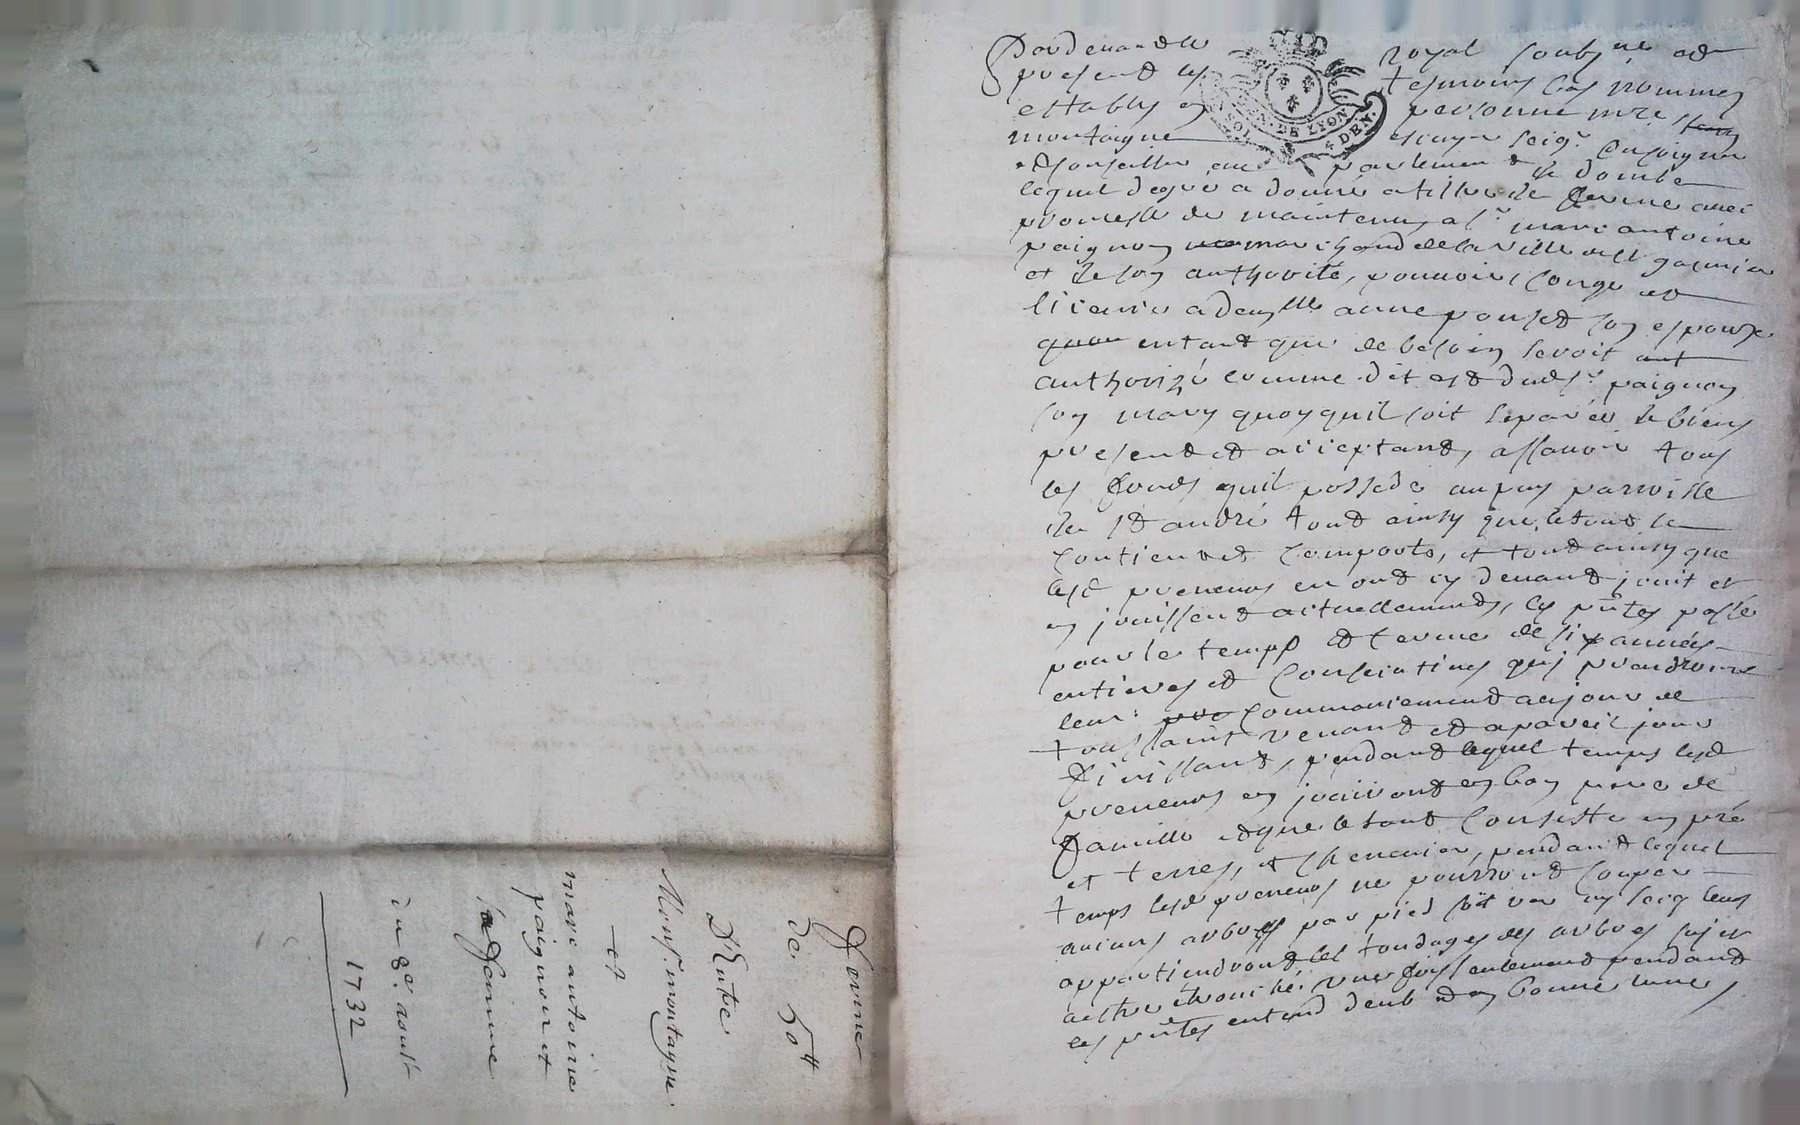 Ferme
de 50tt
D'Entre
Monsr. montagne
et
marc antoine
paignon et
sa femme
du 8e. aoust
1732
Pardevant le royal soubsné et
present les tesmoins bas nommés
establys en personne mre
montaigne escuyer seigr.
conseiller au parlement de dombe
lequel degré a donné a tiltre de ferme avec
promesse de maintenir a sr. marc antoine
paignon marchand de la ville de
et de son authorité, pouvoir, congé et
licence a demlle anne son espouse
quoy entant que de besoin seroit aut
authorizé comme dit est dudt sr. paignon
son mary quoyquil soit separée de biens
present et acceptant, assavoir tous
les fonds quil possede au puy parroisse
de St andré tout ainsy que le tout se
contient et comporte, et tout ainsy que
lesd preneurs en ont cy devant jouit et
en jouissent actuellement, les pntes passé
pour le temps et terme de six années
entieres et consecutives qui prendront
leur commancement au jour de
toussaint venant et a pareil jour
finissant, pendant lequel temps lesd
preneurs en jouiront en bon pere de
famille et que le tout consiste en pré
et terres, et chenevier, pendant lequel
temps lesd preneurs ne pourront couper
aucuns arbres par pied soit ver ou secq leurs
appartiendront les tondages des arbres sujet
a estre une fois seulement pendant
les pntes en tend deub et en bonne lune,
DE LYON
SOL
4 DEN.